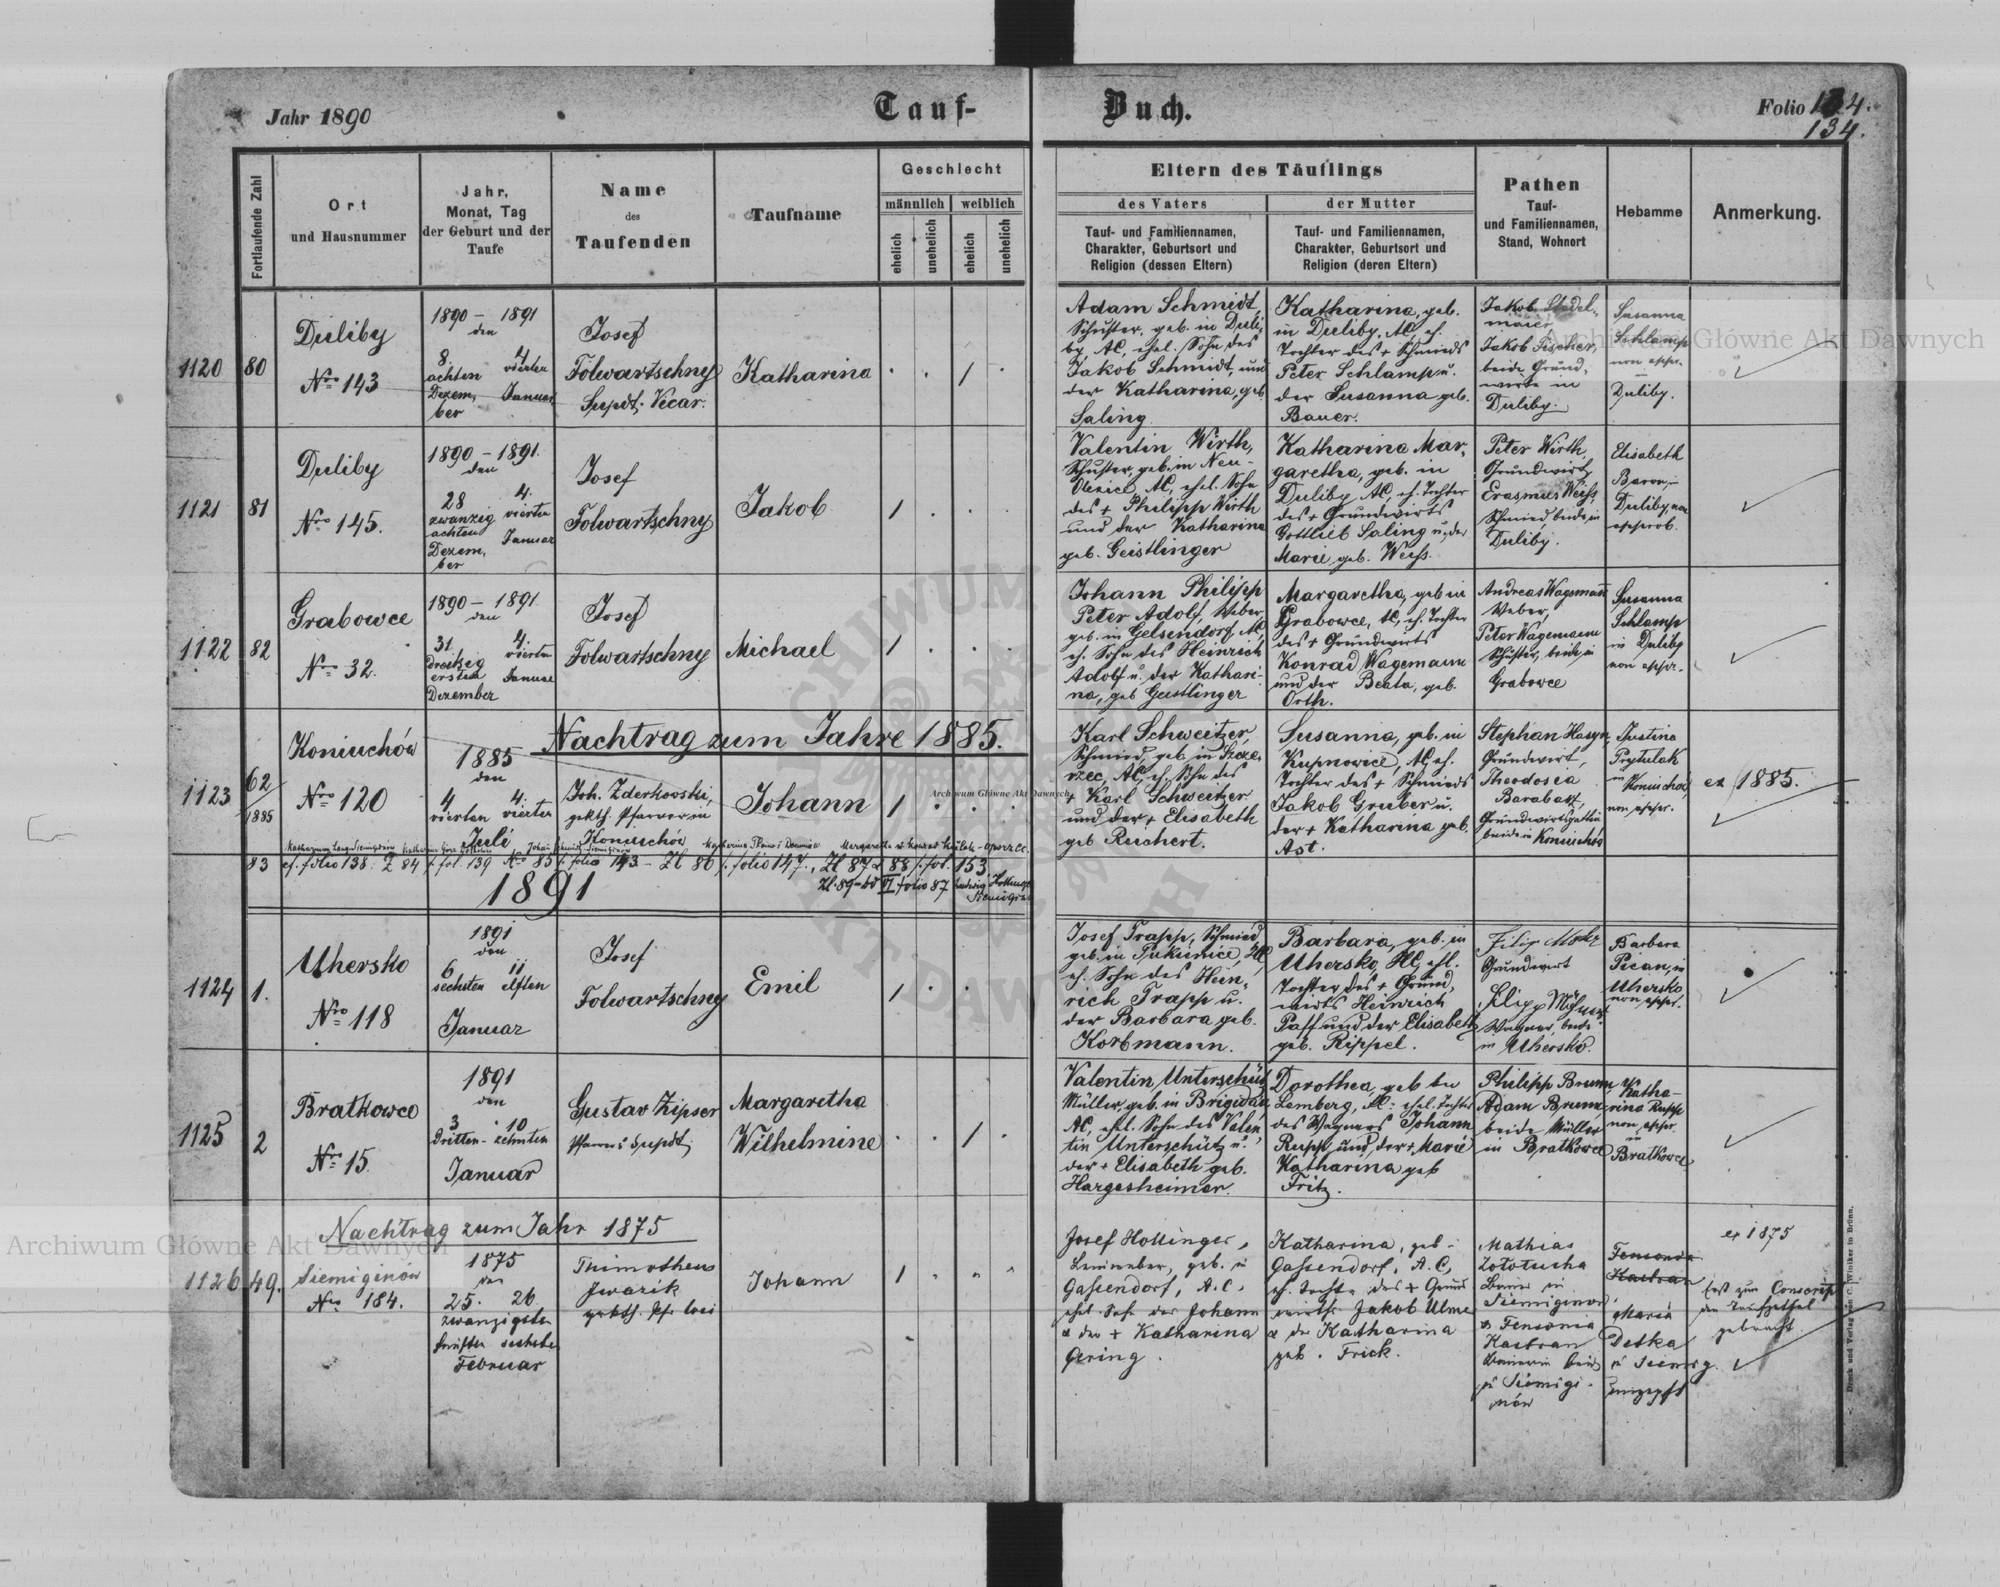 Jahr 1890
Tauf-
Buch.
Folio 134.
134.
Fortlaufende Zahl
Ort
und Hausnummer
Jahr,
Monat, Tag
der Geburt und der
Taufe
Name
des
Taufenden
Taufname
Geschlecht
männlich
weiblich
ehelich
unehelich
ehelich
unehelich
Eltern des Täuflings
des Vaters
der Mutter
Tauf- und Familiennamen,
Charakter, Geburtsort und
Religion (dessen Eltern)
Tauf- und Familiennamen,
Charakter, Geburtsort und
Religion (deren Eltern)
Pathen
Tauf-
und Familiennamen,
Stand, Wohnort
Hebamme
Anmerkung.
1120
80
Duliby
Nro 143
1890 – 1891
den
8. 4.
achten vierten
Dezem- Januar
ber
Josef
Folwartschny
Supdt. Vicar.
Katharina
1
Adam Schmidt,
Schuster, geb. in Duli-
by, AC, ehel. Sohn des
Jakob Schmidt, und
der Katharina, geb.
Saling.
Katharina, geb.
in Duliby, AC, eh.
Tochter des + Schmieds
Peter Schlamp u.
der Susanna geb.
Bauer.
Jakob Stadel-
maier,
Jakob Fischer,
beide Grund-
wirte in
Duliby.
Susanna
Schlamp
non appr.
in
Duliby.
1121
81
Duliby
Nro 145.
1890 – 1891.
den
28 4.
zwanzig vierten
achten Januar
Dezem-
ber
Josef
Folwartschny
Jakob
1
Valentin Wirth,
Schuster, geb. in Neu-
Olexice, AC, ehel. Sohn
des + Philipp Wirth
und der Katharina
geb. Geistlinger
Katharina Mar-
garetha, geb. in
Duliby AC, eh. Tochter
des + Grundwirts
Gottlieb Saling u. der
Marie geb. Weiss.
Peter Wirth,
Grundwirt,
Erasmus Weiss,
Schmied, beide in
Duliby.
Elisabeth
Baron, in
Duliby non
approb.
1122
82
Grabowce
Nro 32.
1890 – 1891
den
31. 4.
dreißig vierten
ersten Januar
Dezember
Josef
Folwartschny
Michael
1
Johann Philipp
Peter Adolf, Weber,
geb. in Gelsendorf, AC,
eh. Sohn des Heinrich
Adolf u. der Kathari-
na, geb. Geistlinger
Margaretha, geb in
Grabowce, AC, eh. Tochter
des + Grundwirts
Konrad Wagemann
und der Beata, geb.
Orth.
Andreas Wagemann
Weber,
Peter Wagemann
Schuster, beide in
Grabowce
Susanna
Schlamp
in Duliby
non appr.
Nachtrag zum Jahre 1885.
1123
62
1885
Koniuchów
Nro 120
1885
den
4. 4.
vierten vierten
Juli
Joh. Zderkowski,
gr. kth. Pfarrer in
Koniuchów
Johann
1
Karl Schweitzer,
Schmied, geb. in Szcze-
rzec, AC, eh. Sohn des
+ Karl Schweitzer
und der + Elisabeth
geb Reichert.
Susanna, geb. in
Kupnowice, AC, eh.
Tochter des + Schmieds
Jakob Gruber u.
der + Katharina geb.
Ast.
Stephan Hasyn,
Grundwirt,
Theodosia
Barabasz,
Grundwirtsgattin
beide in Koniuchów
Justina
Prytulak
in Koniuchów,
non appr.
ex 1885.
83 cf. folio 138. Z 84 f. fol. 139 Nro 85 f. folio 143 – Zl 86 f. folio 147., Zl 87 & 88 f. fol. 153.
Zl. 89 bd VI folio 87
1891
1124
1.
Uhersko
Nro 118
1891
den
6 11
sechsten elften
Januar
Josef
Folwartschny
Emil
1
Josef Trapp, Schmied
geb. in Pukienice, HC,
eh. Sohn des Hein-
rich Trapp u.
der Barbara geb.
Korbmann.
Barbara, geb. in
Uhersko, HC, ehl.
Tochter des + Grund-
wirts Heinrich
Paff und der Elisabeth
geb. Rippel.
Grundwirt
Wagner, beide
in Uhersko.
Barbara
Pican, in
Uhersko
non appr.
1125
2
Bratkowce
Nro 15.
1891
den
3. 10
dritten – zehnten
Januar
Gustav Zipser
Pfarrer & Supdt.
Margaretha
Wilhelmine
1
Valentin Unterschütz
Müller, geb. in Brigidau,
AC, ehel. Sohn des Valen-
tin Unterschütz u.
der + Elisabeth geb.
Hargesheimer.
Dorothea, geb in
Lemberg, AC: ehel. Tochter
des Wagners Johann
Rupp und der + Marie
Katharina geb
Fritz.
Philipp Brunn,
Adam Brunn,
beide Müller
in Bratkowce
Katha-
rina Rupp
non appr.
in
Bratkowce
Nachtrag zum Jahr 1875
1126
49.
Siemiginów
Nro 184.
1875
den
25. 26
zwanzigsten
fünften sechsten
Februar
Thimotheus
Jwarik
gr. kth. Pfr. loci
Johann
1
Josef Hollinger,
Leinweber, geb. in
Gassendorf, A.C.,
ehel. Sohn des Johann
& der + Katharina
Gering.
Katharina, geb. in
Gassendorf, A.C.,
eh. Tochter des + Grund
wirths Jakob Ulme
& der Katharina
geb. Frick.
Mathias
Zototucha
Bauer in
Siemiginów
& Fensonia
Kastran
Bäuerin beide
in Siemigi-
nów
Fensonia
Kastran
Maria
Detka
in Siemig.
ungeprft
ex 1875
Erst zum Conscript
den Taufzettel
gebracht
Druck und Verlag von C. Winiker in Brünn.
Archiwum Główne Akt Dawnych
Archiwum Główne Akt Dawnych
Archiwum Główne Akt Dawnych